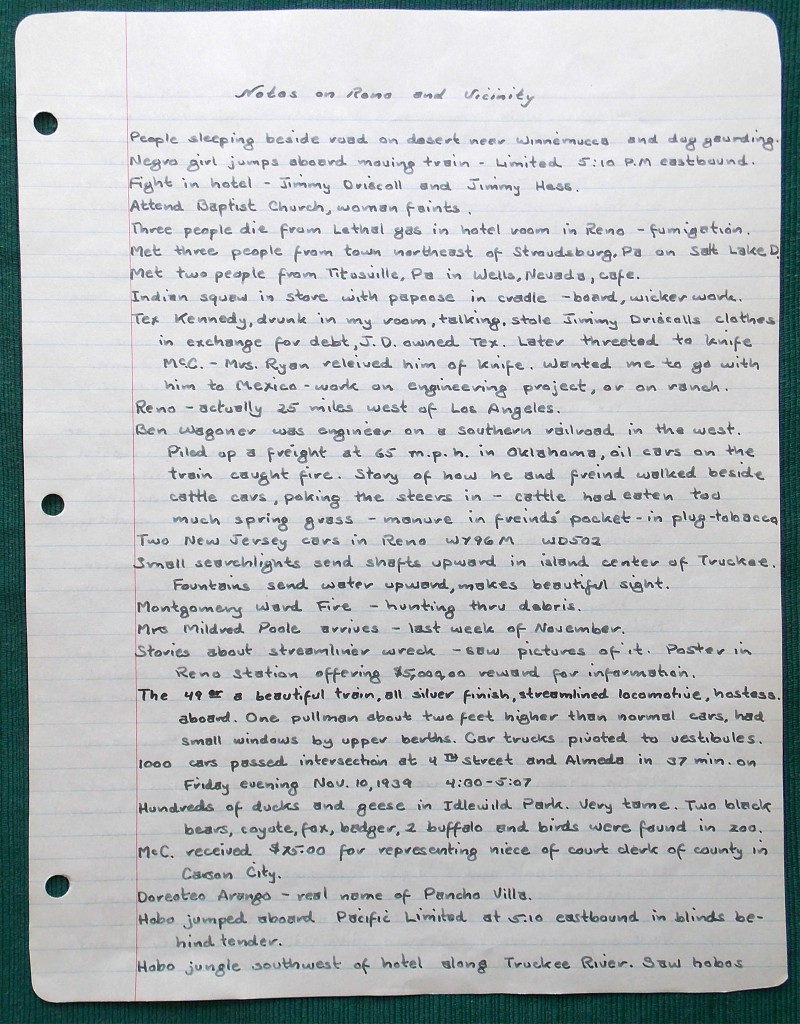 Notes on Reno and Vicinity
People sleeping beside road on desert near Winnemucca and dog gaurding.
Negro girl jumps aboard moving train - Limited 5:10 P.M eastbound.
Fight in hotel - Jimmy Driscoll and Jimmy Hess.
Attend Baptist Church, woman faints.
Three people die from Lethal gas in hotel room in Reno - fumigation.
Met three people from town northeast of Stroudsburg, Pa on Salt Lake D.
Met two people from Titusville, Pa in Wells, Nevada, cafe.
Indian squaw in store with papoose in cradle - board, wicker work.
Tex Kennedy, drunk in my room, talking, stole Jimmy Driscolls clothes
in exchange for debt, J.D. owned Tex. Later threated to knife
McC. - Mrs. Ryan releived him of knife. Wanted me to go with
him to Mexico - work on engineering project, or on ranch.
Reno - actually 25 miles west of Los Angeles.
Ben Wagoner was engineer on a southern railroad in the west.
Piled up a freight at 65 m.p.h. in Oklahoma, oil cars on the
train caught fire. Story of how he and freind walked beside
cattle cars, poking the steers in - cattle had eaten too
much spring grass - manure in freinds' pocket - in plug-tobacco
Two New Jersey cars in Reno WY96M WD502
Small searchlights send shafts upward in island center of Truckee.
Fountains send water upward, makes beautiful sight.
Montgomery Ward Fire - hunting thru debris.
Mrs Mildred Poole arrives - last week of November.
Stories about streamliner wreck - saw pictures of it. Poster in
Reno Station offering $5,000,00 reward for information.
The 49er a beautiful train, all silver finish, streamlined locomotive, hostess
aboard. One pullman about two feet higher than normal cars, had
small windows by upper berths. Car trucks pivoted to vestibules.
1000 cars passed intersection at 4TH street and Almeda in 37 min. on
Friday evening Nov. 10, 1939 4:30-5:07
Hundreds of ducks and geese in Idlewild Park. Very tame. Two black
bears, coyote, fox, badger, 2 buffalo and birds were found in zoo.
McC. received $75.00 for representing niece of court clerk of county in
Carson City.
Doreoteo Arango - real name of Pancho Villa.
Hobo jumped aboard Pacific Limited at 5:10 eastbound in blinds be-
hind tender.
Hobo jungle southwest of hotel along Truckee River. Saw hobos